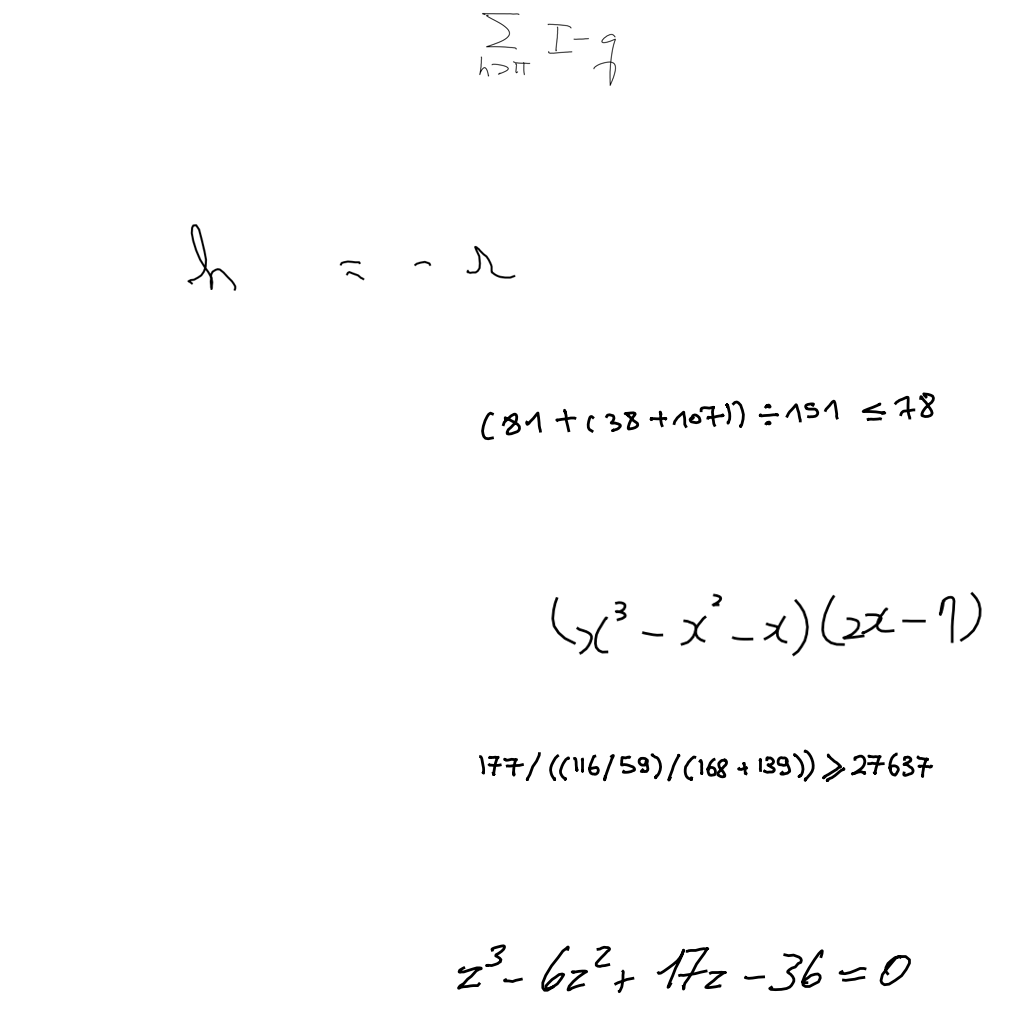 ∑_{h>π} I - q
h = - r
(81 + (38 + 107)) ÷ 151 ≤ 78
(x³ - x² - x)(2x - 7)
177 / ((116 / 59) / (168 + 139)) ≥ 27637
z³ - 6z² + 17z - 36 = 0